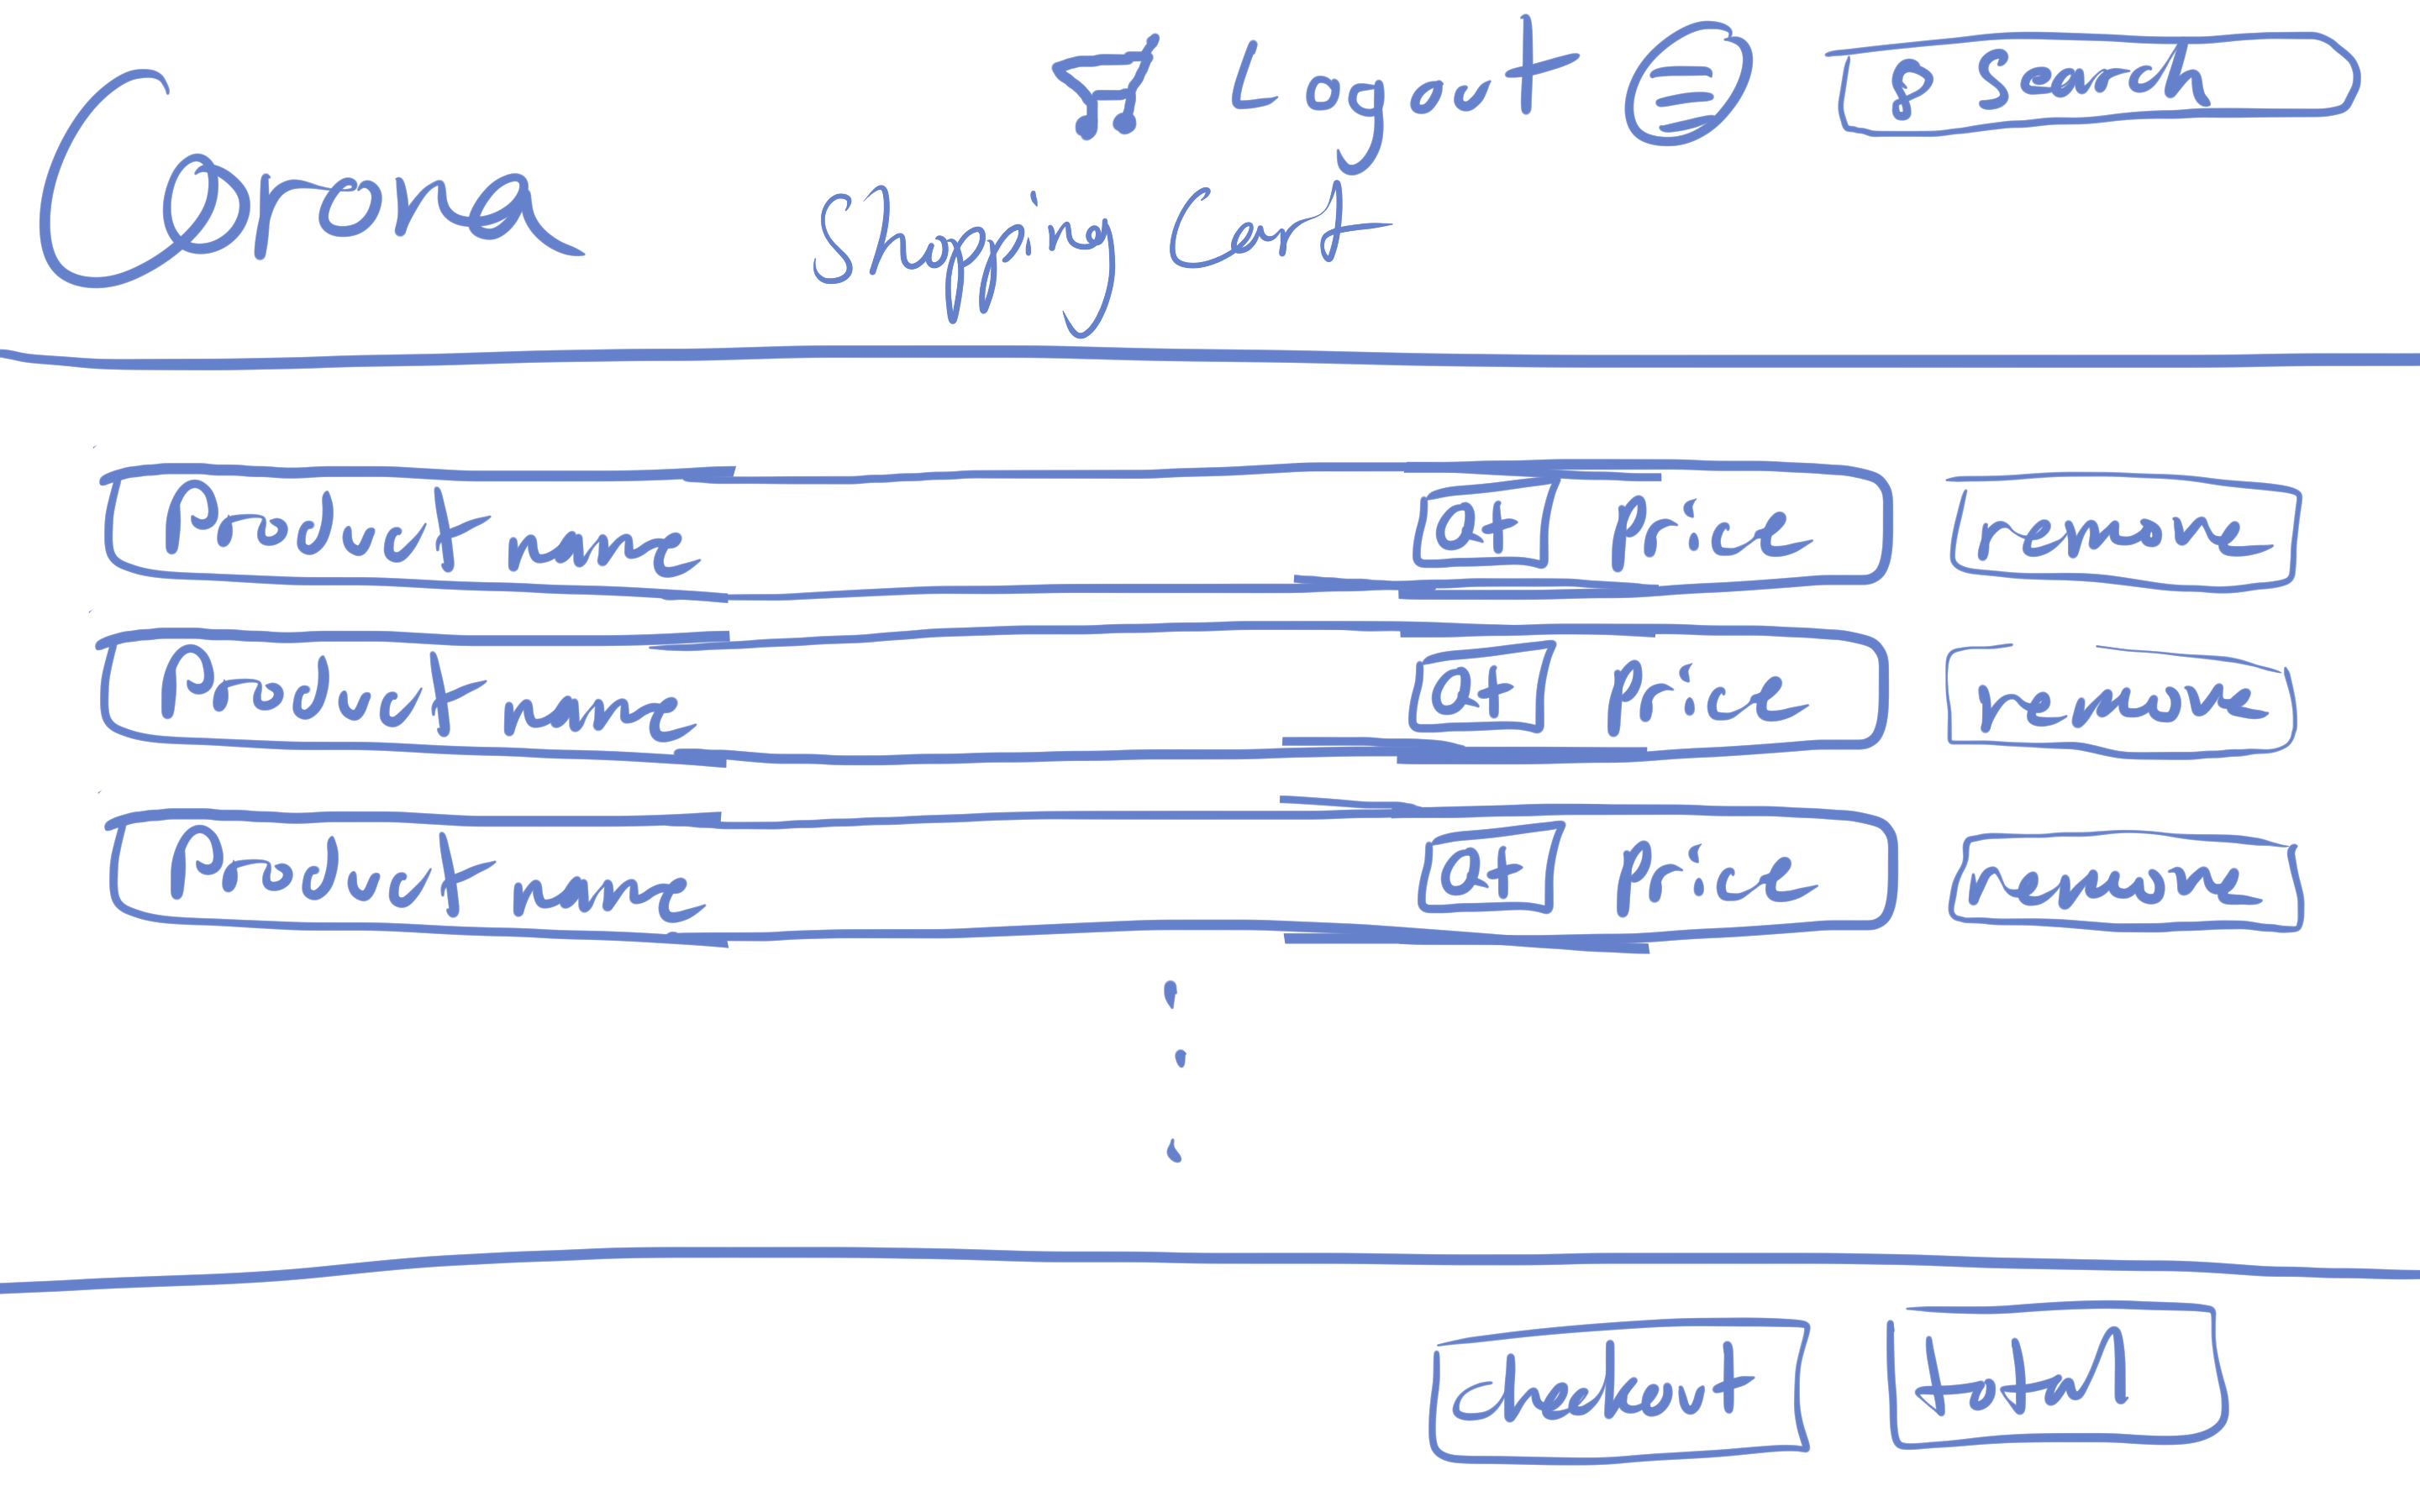 Logout Search
Corona
Shopping Cart
Product name Qt Price remove
Product name Qt Price remove
Product name Qt Price remove
checkout total